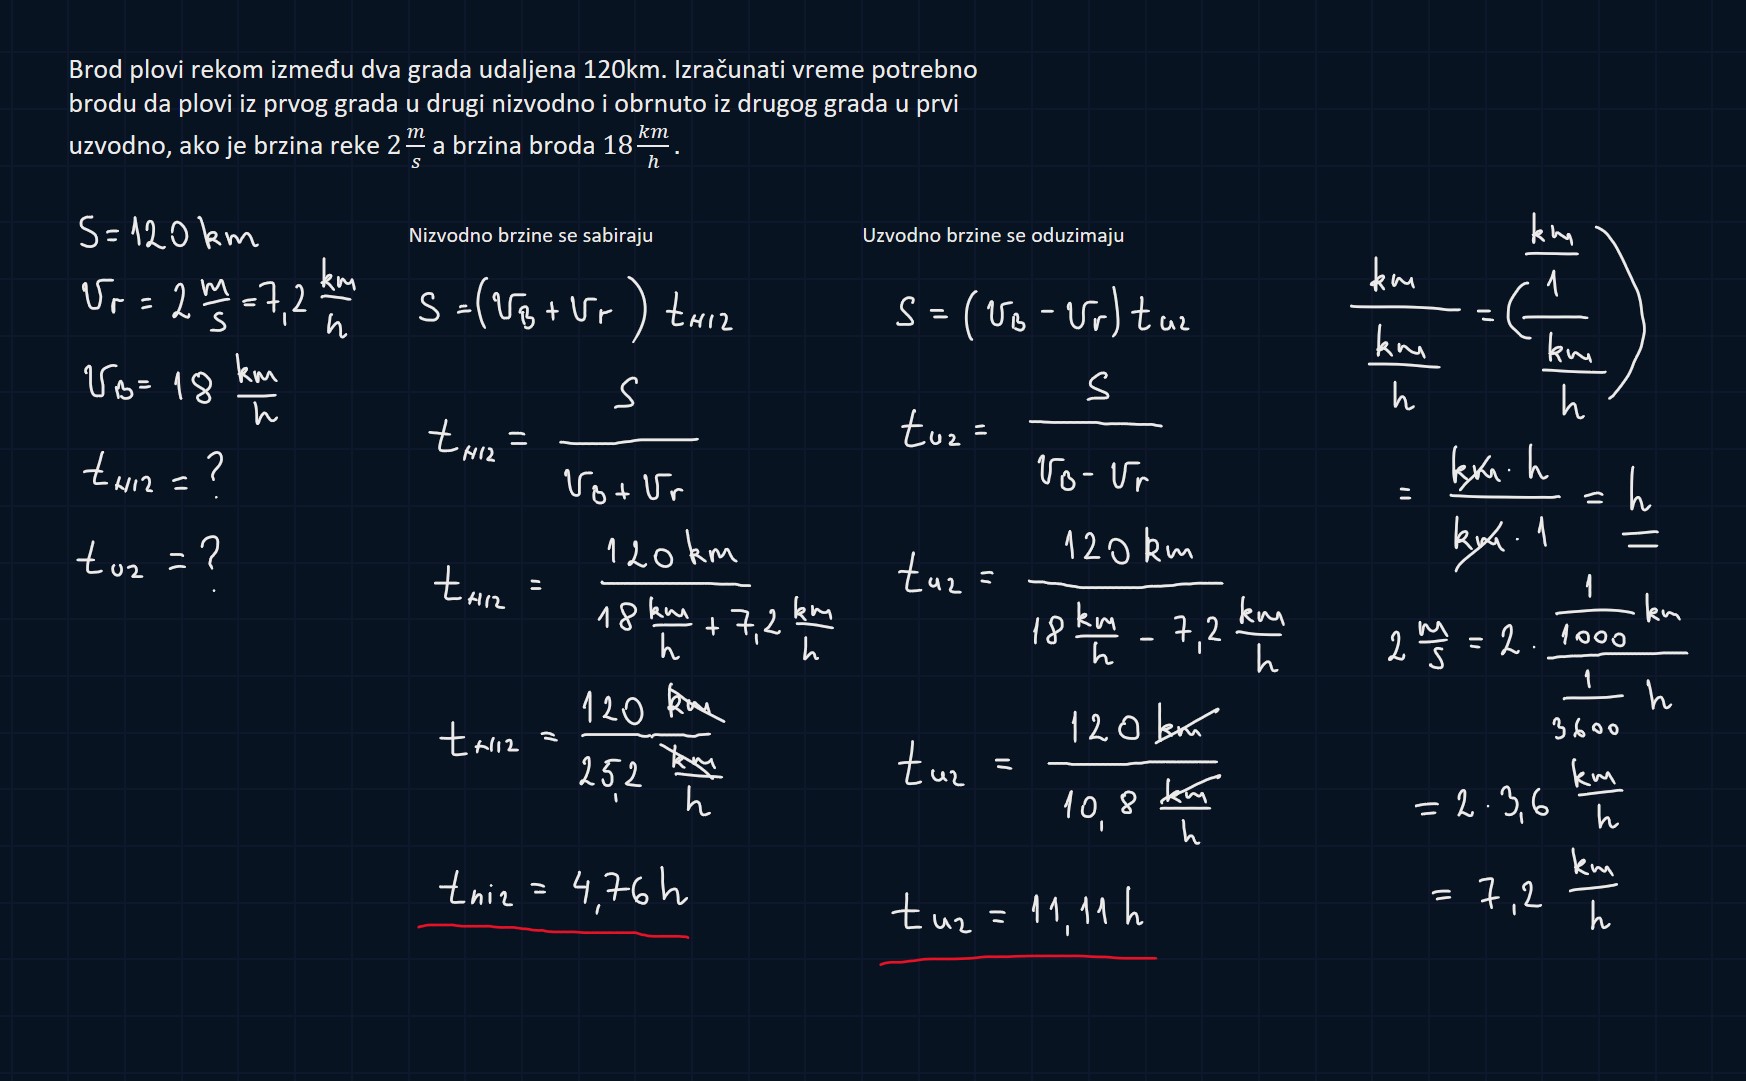 Brod plovi rekom između dva grada udaljena 120km. Izračunati vreme potrebno
brodu da plovi iz prvog grada u drugi nizvodno i obrnuto iz drugog grada u prvi
uzvodno, ako je brzina reke 2 m/s a brzina broda 18 km/h .
S = 120 km
Vr = 2 m/s = 7,2 km/h
VB = 18 km/h
tniz = ?
tuz = ?
Nizvodno brzine se sabiraju
S = (VB + Vr) tniz
tniz = S / (VB + Vr)
tniz = 120 km / (18 km/h + 7,2 km/h)
tniz = 120 km / 25,2 km/h
tniz = 4,76 h
Uzvodno brzine se oduzimaju
S = (VB - Vr) tuz
tuz = S / (VB - Vr)
tuz = 120 km / (18 km/h - 7,2 km/h)
tuz = 120 km / 10,8 km/h
tuz = 11,11 h
km / (km/h) = ((km/1) / (km/h))
= (km · h) / (km · 1) = h
2 m/s = 2 · (1/1000 km) / (1/3600 h)
= 2 · 3,6 km/h
= 7,2 km/h